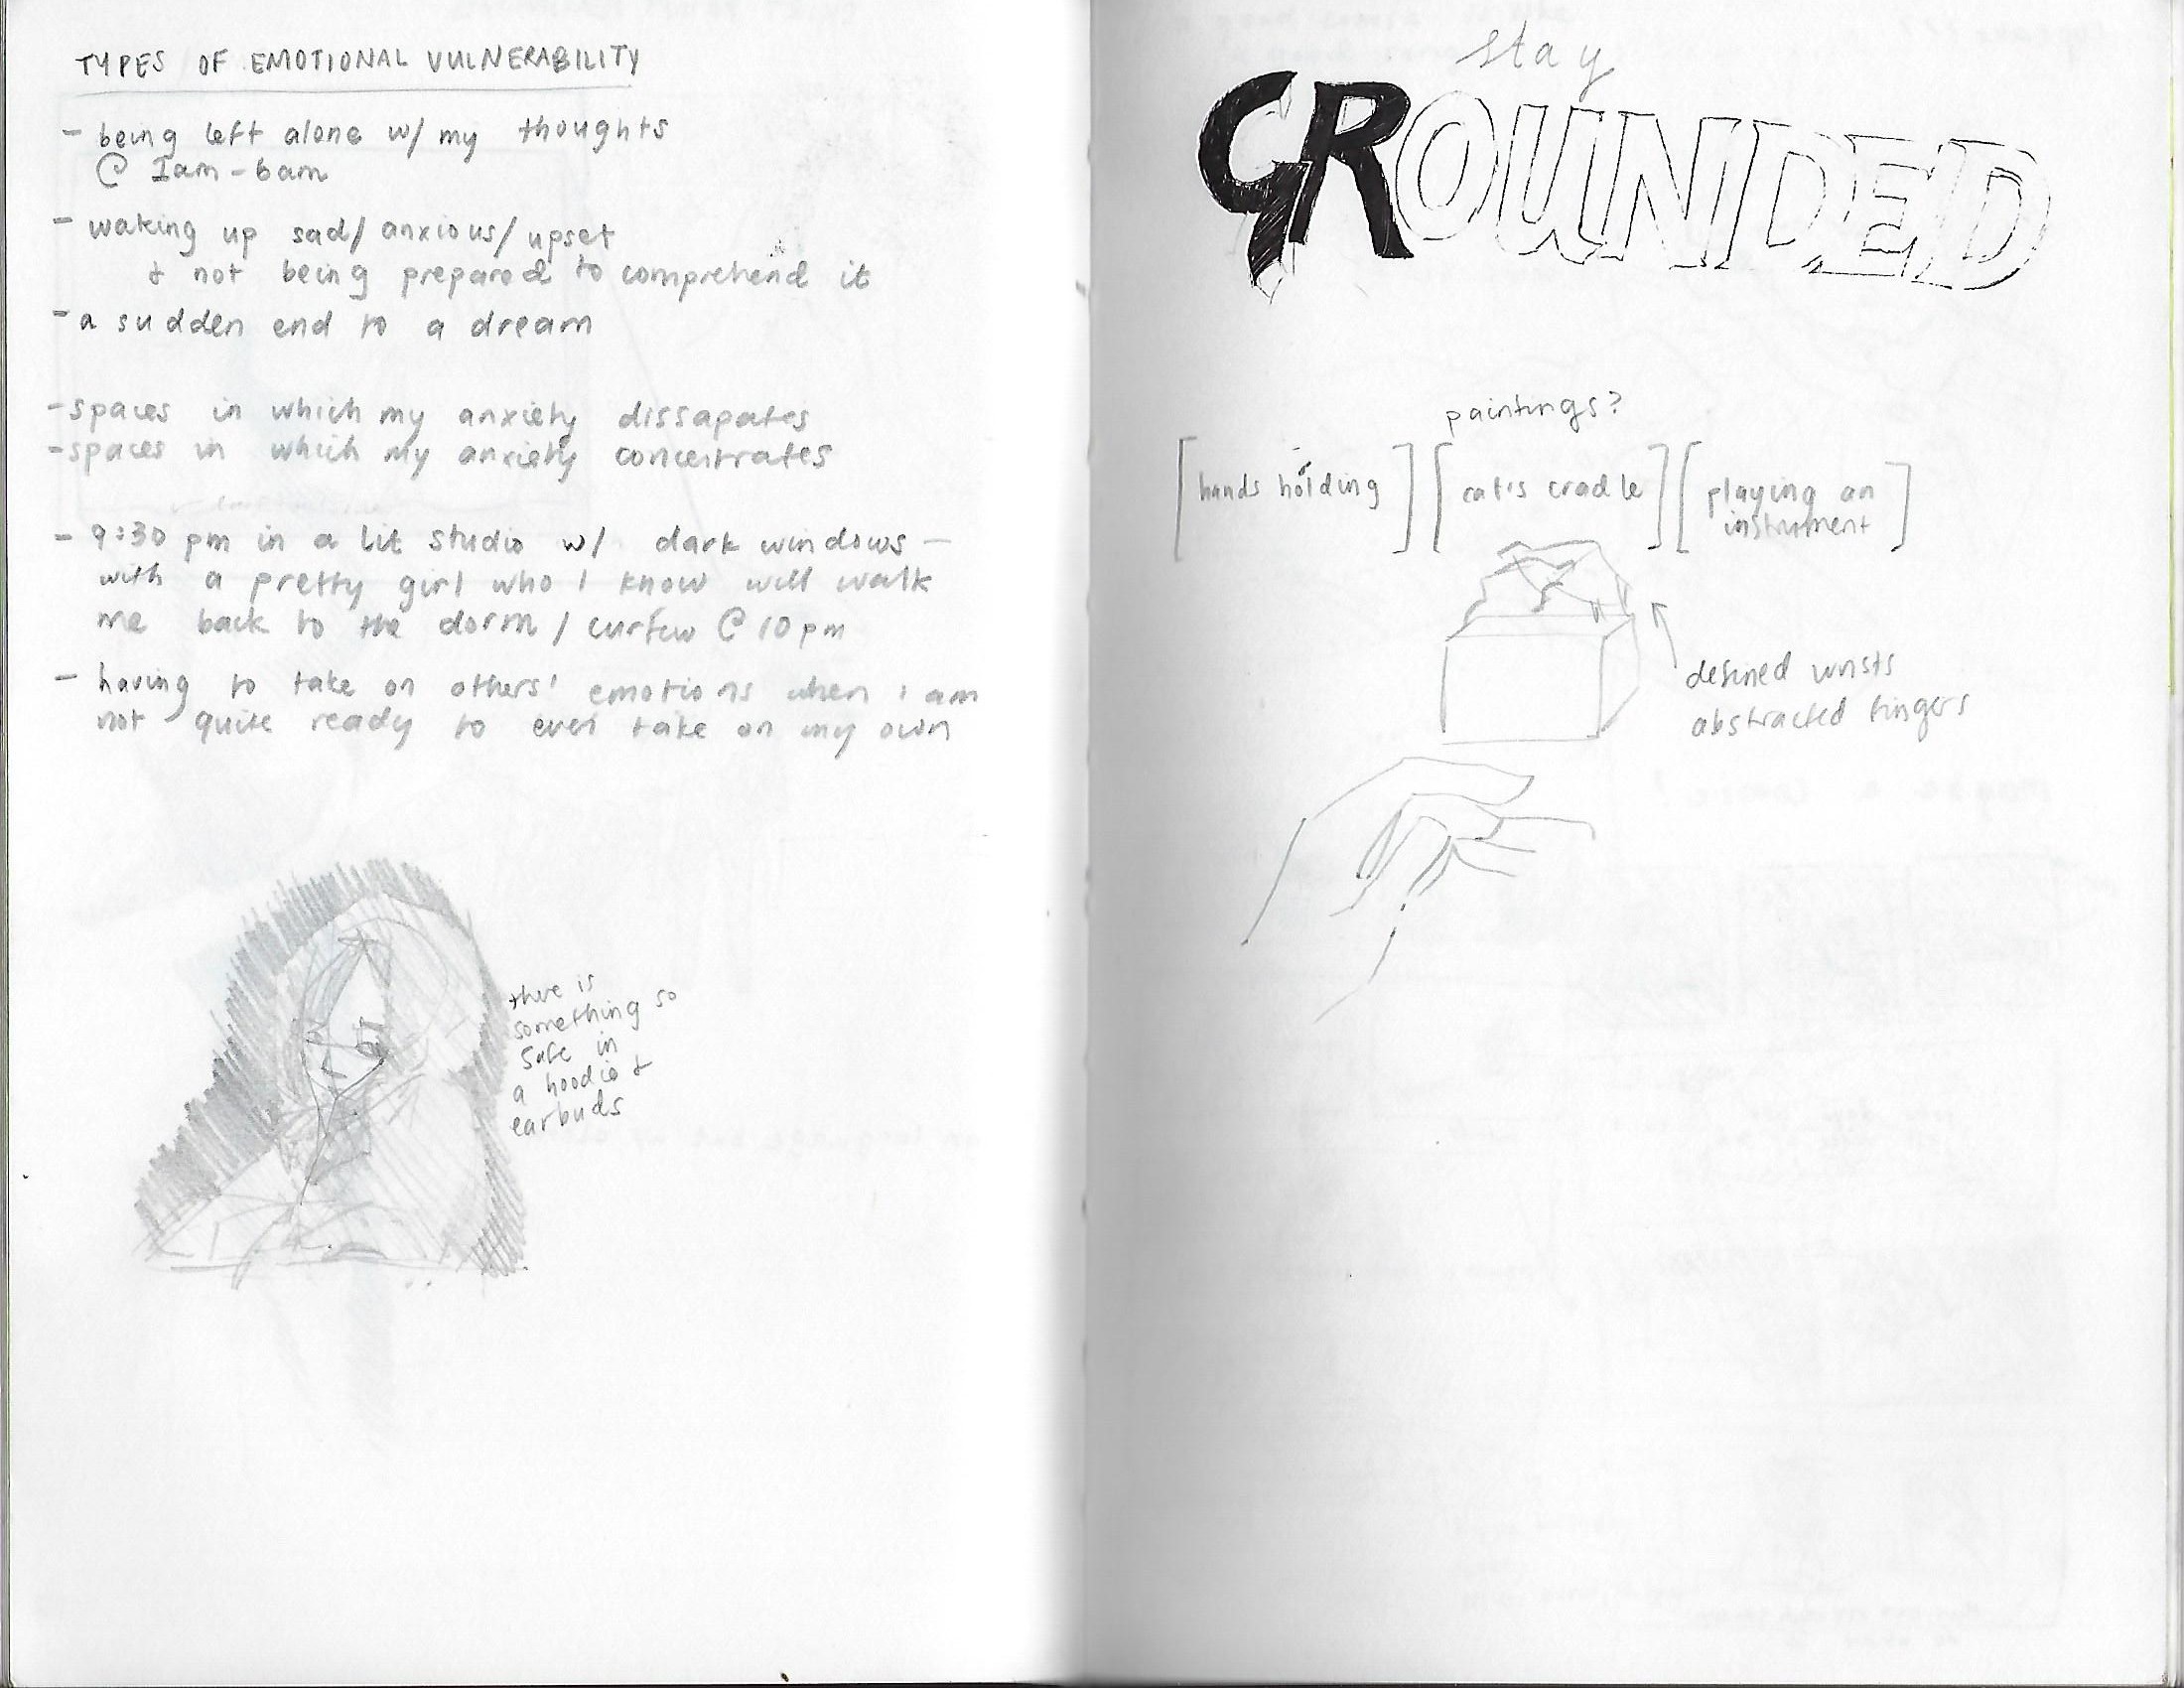 TYPES OF EMOTIONAL VULNERABILITY
- being left alone w/ my thoughts
@ 1am - 6am
- waking up sad/ anxious/ upset
& not being prepared to comprehend it
- a sudden end to a dream
- spaces in which my anxiety dissapates
- spaces in which my anxiety concentrates
- 9:30 pm in a lit studio w/ dark windows —
with a pretty girl who I know will walk
me back to the dorm / curfew @ 10 pm
- having to take on others' emotions when i am
not quite ready to even take on my own
there is
something so
safe in
a hoodie &
earbuds
stay
GROUNDED
paintings?
[hands holding] [cat's cradle] [playing an
instrument]
defined wrists
abstracted fingers